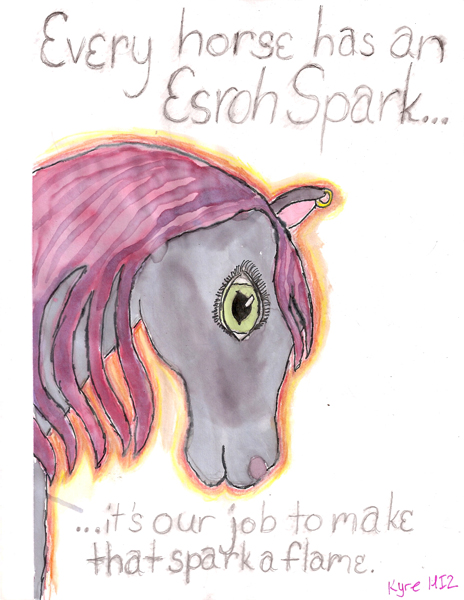 Every horse has an
Esroh Spark...
...it's our job to make
that spark a flame.
Kyre MIZ